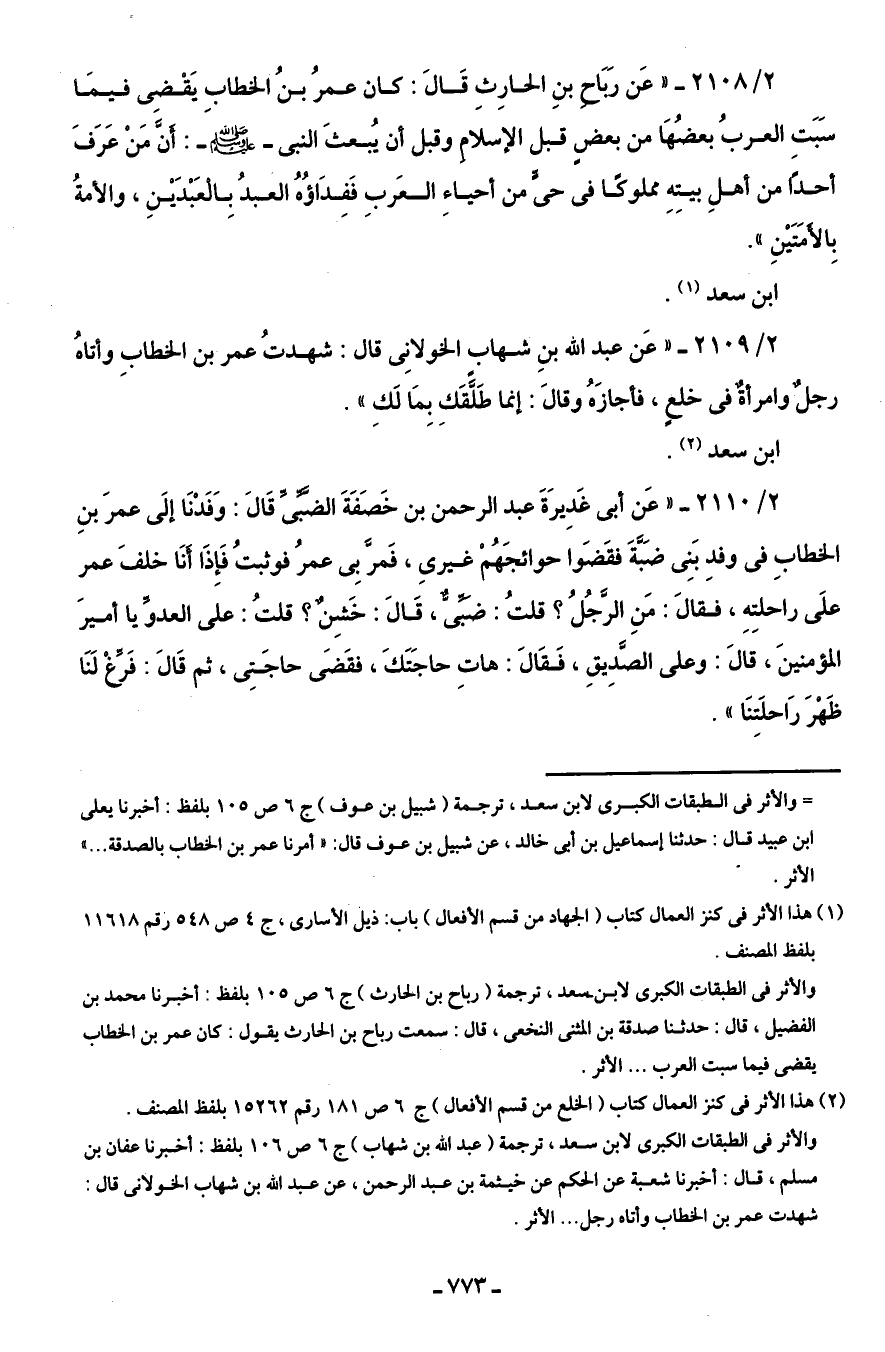 ٢/ ٢١٠٨ ـ « عَن رَبَاحِ بنِ الحارِثِ قَالَ : كان عمرُ بنُ الخطابِ يَقْضِى فيمَا
سَبَتِ العربُ بعضُهَا من بعضٍ قبل الإسلامِ وقبل أن يُبعثَ النبى ـ ﷺ ـ : أَنَّ مَنْ عَرَفَ
أحدًا من أهلِ بيتِهِ مملوكًا فى حىٍّ من أحياءِ العَربِ فَفِدَاؤُهُ العبدُ بِالْعَبْدَيْنِ ، والأمةُ
بِالأَمَتَيْنِ » .
ابن سعد (١) .
٢/ ٢١٠٩ ـ « عَن عبد الله بنِ شهابٍ الخولانى قال : شهدتُ عمر بن الخطابِ وأتاهُ
رجلٌ وامرأةٌ فى خلعٍ ، فأجازَهُ وقالَ : إنما طَلَّقَكِ بِمَا لَكِ » .
ابن سعد (٢) .
٢/ ٢١١٠ ـ « عَن أبى غَدِيرَةَ عبد الرحمن بن خَصَفَةَ الضبِّىِّ قَالَ : وَفَدْنَا إلَى عمرَ بنِ
الخطابِ فى وفدِ بَنِى ضبَّةَ فقضَوا حوائجَهُمْ غيرِى ، فَمرَّ بِى عمرُ فوثبتُ فَإذَا أنَا خلفَ عمر
علَى راحلتِهِ ، فقالَ : مَنِ الرَّجُلُ ؟ قلتُ : ضبِّىٌّ ، قَالَ : خَشنٌ ؟ قلتُ : على العدوِّ يا أميرَ
المؤمنينَ ، قالَ : وعلى الصَّدِيقِ ، فَقَالَ : هاتِ حاجَتَكَ ، فقضَى حاجَتِى ، ثم قَالَ : فَرِّغْ لَنَا
ظَهْرَ رَاحلَتِنَا » .
= والأثر فى الطبقات الكبرى لابن سعد ، ترجمة ( شبيل بن عوف ) ج ٦ ص ١٠٥ بلفظ : أخبرنا يعلى
ابن عبيد قال : حدثنا إسماعيل بن أبى خالد ، عن شبيل بن عوف قال: « أمرنا عمر بن الخطاب بالصدقة...»
الأثر .
(١) هذا الأثر فى كنز العمال كتاب ( الجهاد من قسم الأفعال ) باب: ذيل الأسارى ، ج ٤ ص ٥٤٨ رقم ١١٦١٨
بلفظ المصنف .
والأثر فى الطبقات الكبرى لابن سعد ، ترجمة ( رباح بن الحارث ) ج ٦ ص ١٠٥ بلفظ : أخبرنا محمد بن
الفضيل ، قال : حدثنا صدقة بن المثنى النخعى ، قال : سمعت رباح بن الحارث يقول : كان عمر بن الخطاب
يقضى فيما سبت العرب ... الأثر .
(٢) هذا الأثر فى كنز العمال كتاب ( الخلع من قسم الأفعال ) ج ٦ ص ١٨١ رقم ١٥٢٦٢ بلفظ المصنف .
والأثر فى الطبقات الكبرى لابن سعد ، ترجمة ( عبد الله بن شهاب ) ج ٦ ص ١٠٦ بلفظ : أخبرنا عفان بن
مسلم ، قال : أخبرنا شعبة عن الحكم عن خيثمة بن عبد الرحمن ، عن عبد الله بن شهاب الخولانى قال :
شهدت عمر بن الخطاب وأتاه رجل... الأثر .
ـ ٧٧٣ ـ